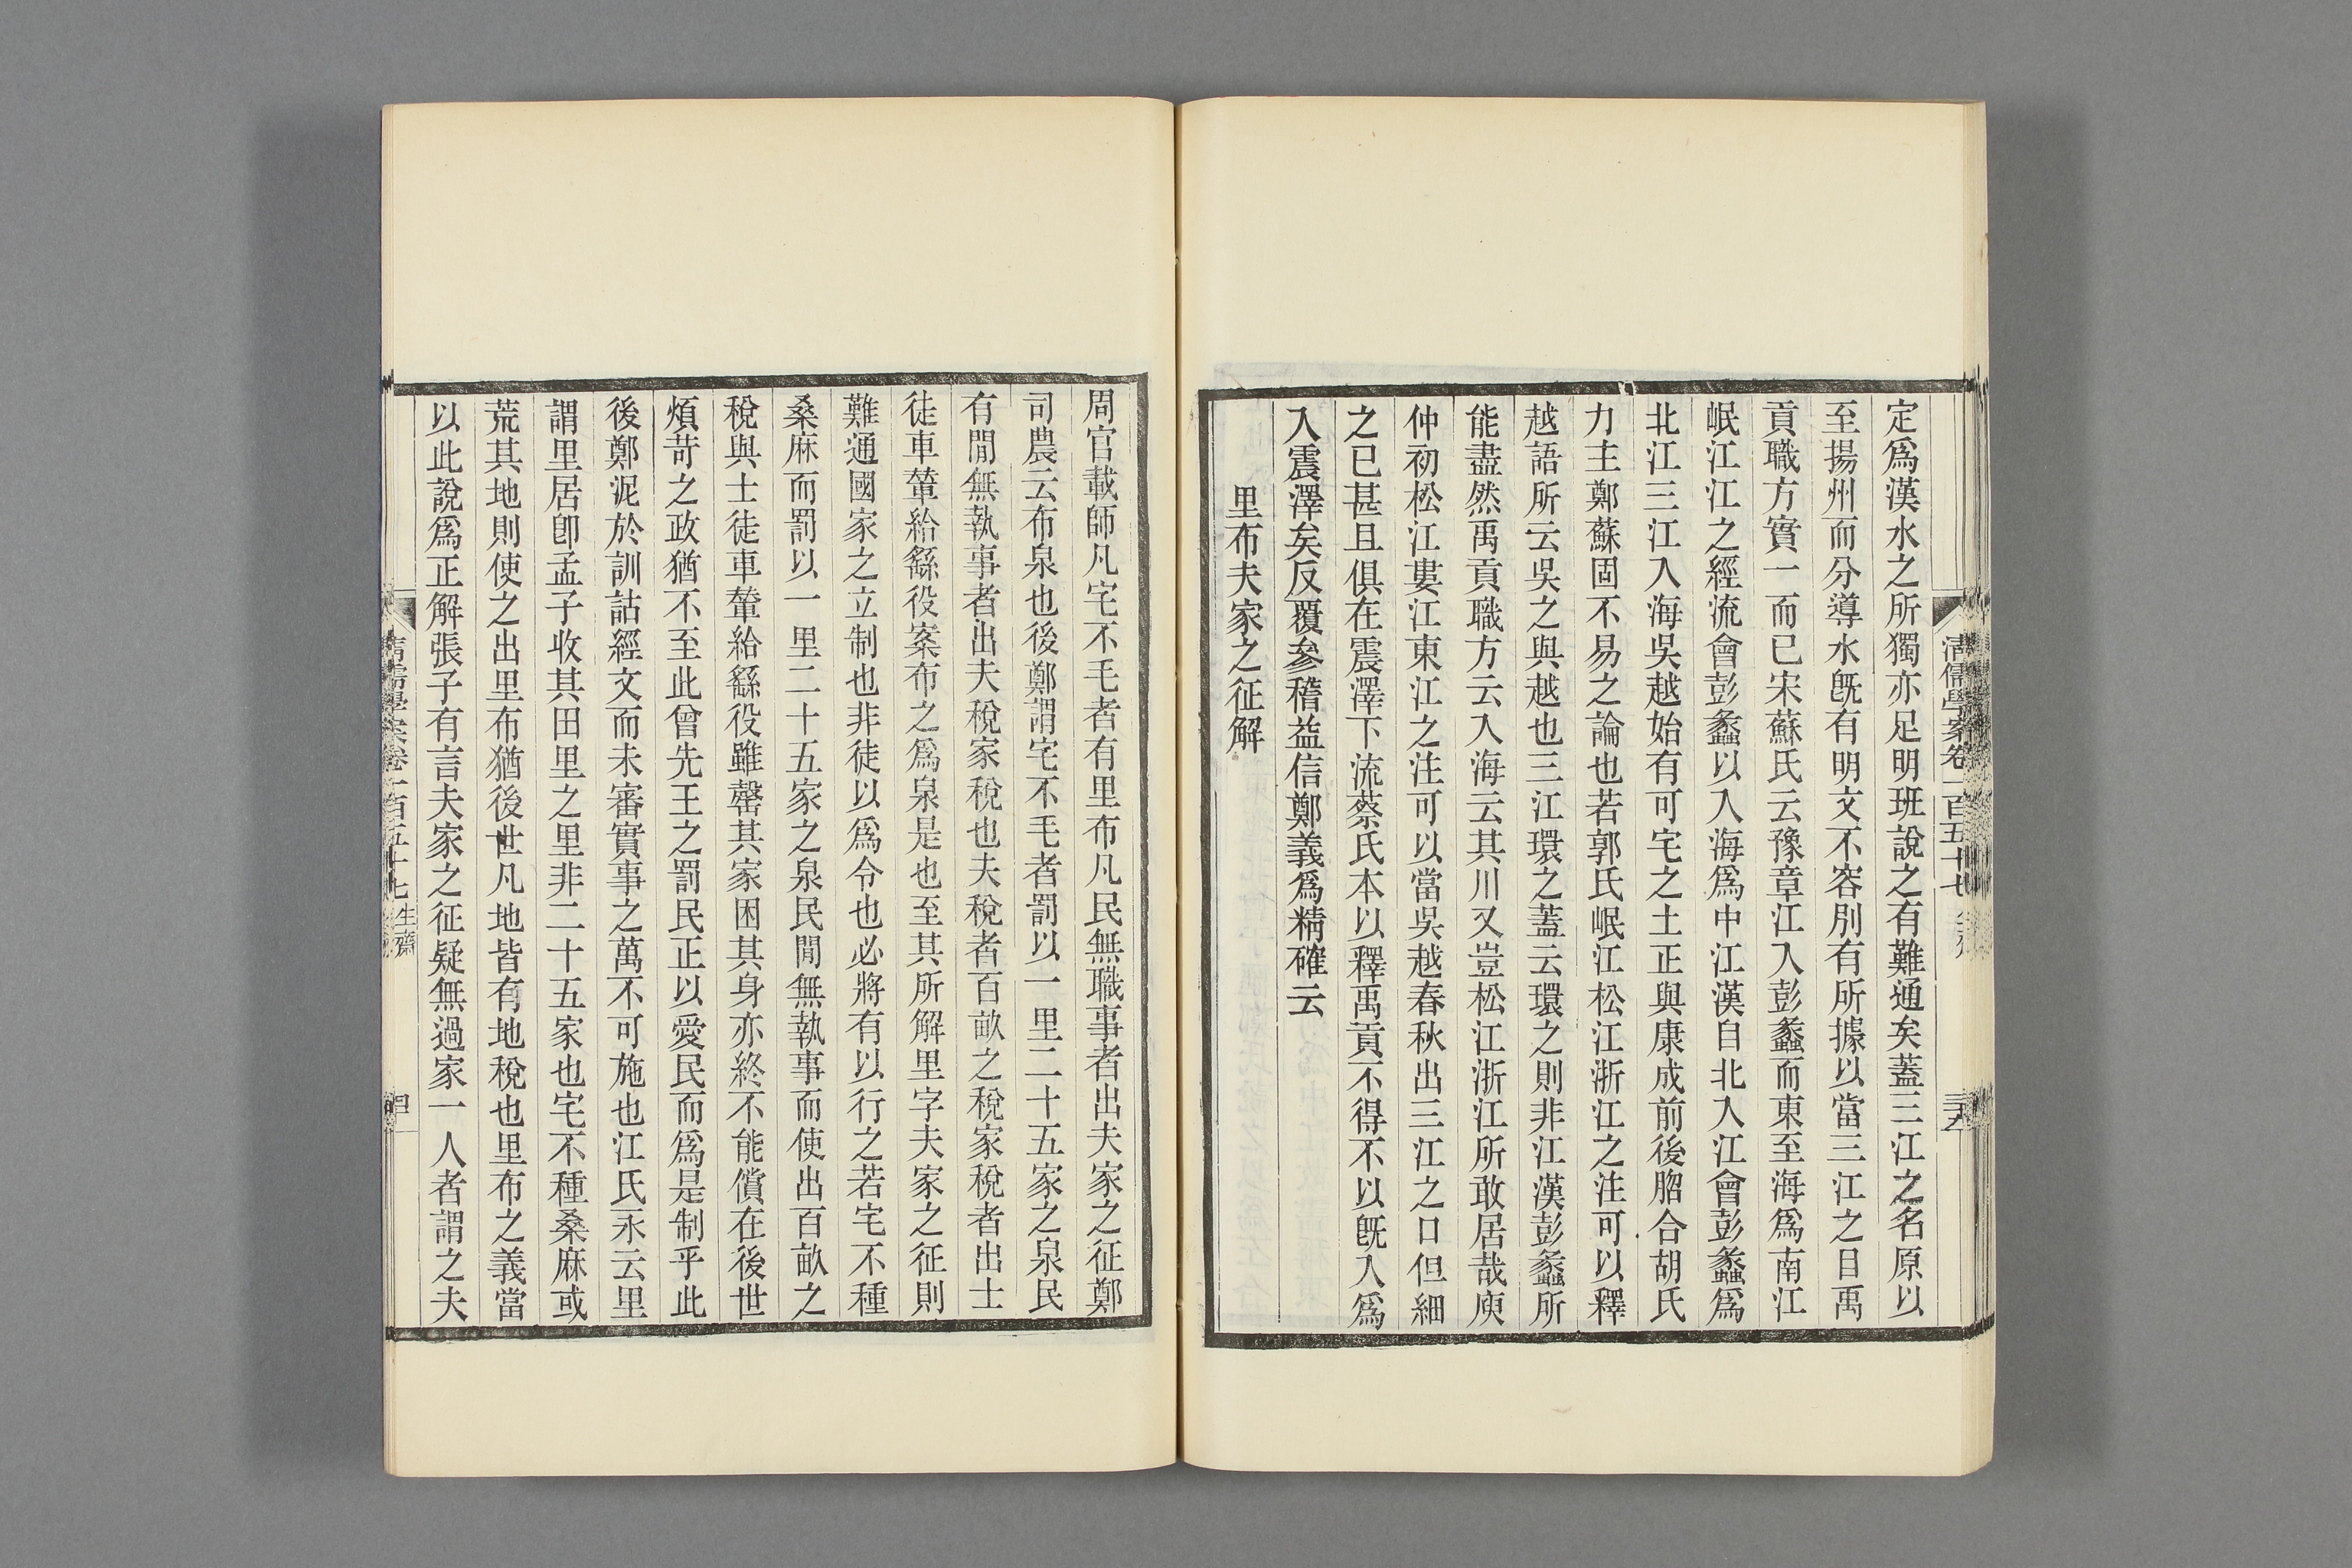 清儒學案卷一百五十七
定爲漢水之所獨亦足明班說之有難通矣蓋三江之名原以
至揚州而分導水旣有明文不容別有所據以當三江之目禹
貢職方實一而已宋蘇氏云豫章江入彭蠡而東至海爲南江
岷江江之經流會彭蠡以入海爲中江漢自北入江會彭蠡爲
北江三江入海吳越始有可宅之土正與康成前後脗合胡氏
力主鄭蘇固不易之論也若郭氏岷江松江浙江之注可以釋
越語所云吳之與越也三江環之蓋云環之則非江漢彭蠡所
能盡然禹貢職方云入海云其川又豈松江浙江所敢居哉庾
仲初松江婁江東江之注可以當吳越春秋出三江之口但細
之已甚且俱在震澤下流蔡氏本以釋禹貢不得不以旣入爲
入震澤矣反覆參稽益信鄭義爲精確云
里布夫家之征解
周官載師凡宅不毛者有里布凡民無職事者出夫家之征鄭
司農云布泉也後鄭謂宅不毛者罰以一里二十五家之泉民
有閒無執事者出夫稅家稅也夫稅者百畝之稅家稅者出士
徒車輦給繇役案布之爲泉是也至其所解里字夫家之征則
難通國家之立制也非徒以爲令也必將有以行之若宅不種
桑麻而罰以一里二十五家之泉民閒無執事而使出百畝之
稅與士徒車輦給繇役雖罄其家困其身亦終不能償在後世
煩苛之政猶不至此曾先王之罰民正以愛民而爲是制乎此
後鄭泥於訓詁經文而未審實事之萬不可施也江氏永云里
謂里居卽孟子收其田里之里非二十五家也宅不種桑麻或
荒其地則使之出里布猶後世凡地皆有地稅也里布之義當
以此說爲正解張子有言夫家之征疑無過家一人者謂之夫
清儒學案卷一百五十七 生齋